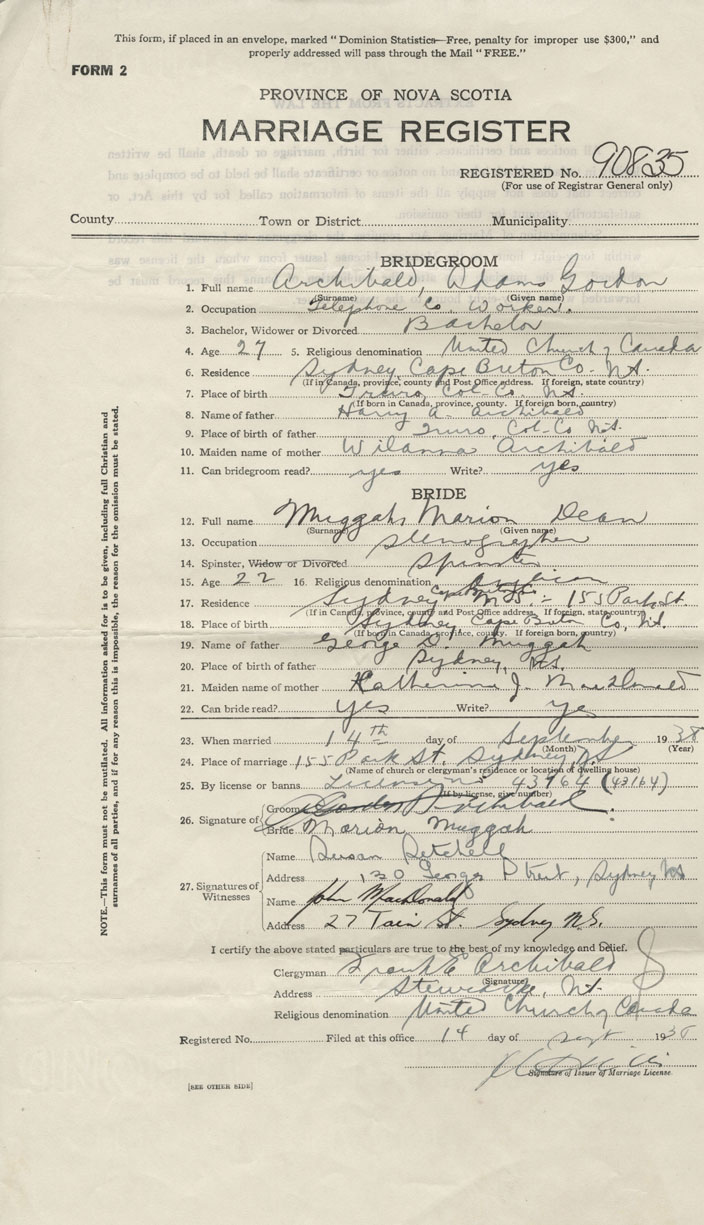 This form, if placed in an envelope, marked "Dominion Statistics—Free, penalty for improper use $300," and
properly addressed will pass through the Mail "FREE."
FORM 2
PROVINCE OF NOVA SCOTIA
MARRIAGE REGISTER
REGISTERED No. 90835
(For use of Registrar General only)
County Town or District Municipality
BRIDEGROOM
1. Full name Archibald, Adams Gordon
(Surname) (Given name)
2. Occupation Telephone Co. Worker.
3. Bachelor, Widower or Divorced Bachelor
4. Age 27 5. Religious denomination United Church of Canada
6. Residence Sydney, Cape Breton Co. N.S.
(If in Canada, province, county and Post Office address. If foreign, state country)
7. Place of birth Truro, Col. Co. N.S.
(If born in Canada, province, county. If foreign born, country)
8. Name of father Harry A. Archibald
9. Place of birth of father Truro, Col. Co N.S.
10. Maiden name of mother Wilanna Archibald
11. Can bridegroom read? yes Write? yes
BRIDE
12. Full name Muggah, Marion Dean
(Surname) (Given name)
13. Occupation Stenographer
14. Spinster, Widow or Divorced Spinster
15. Age 22 16. Religious denomination Anglican
17. Residence Sydney Cape Breton N.S. - 155 Park St
(If in Canada, province, county and Post Office address. If foreign, state country)
18. Place of birth Sydney Cape Breton Co, N.S.
(If born in Canada, province, county. If foreign born, country)
19. Name of father George D. Muggah
20. Place of birth of father Sydney, N.S.
21. Maiden name of mother Katherine J. MacDonald
22. Can bride read? yes Write? yes
23. When married 14th day of September 1938
(Month) (Year)
24. Place of marriage 155 Park St. Sydney, N.S
(Name of church or clergyman's residence or location of dwelling house)
25. By license or banns License no 43164 (43164)
(If by license, give number)
26. Signature of
Groom Gordon Archibald
Bride Marion Muggah
27. Signatures of Witnesses
Name Susan
Address 130 George Street, Sydney NS
Name John MacDonald
Address 27 Tain St. Sydney N.S.
I certify the above stated particulars are true to the best of my knowledge and belief.
Clergyman Frank E Archibald
(Signature)
Address Stewiacke, N.S.
Religious denomination United Church of Canada
Registered No. Filed at this office 14 day of Sept 1938
Signature of Issuer of Marriage License.
[SEE OTHER SIDE]
NOTE.—This form must not be mutilated. All information asked for is to be given, including full Christian and
surnames of all parties, and if for any reason this is impossible, the reason for the omission must be stated.